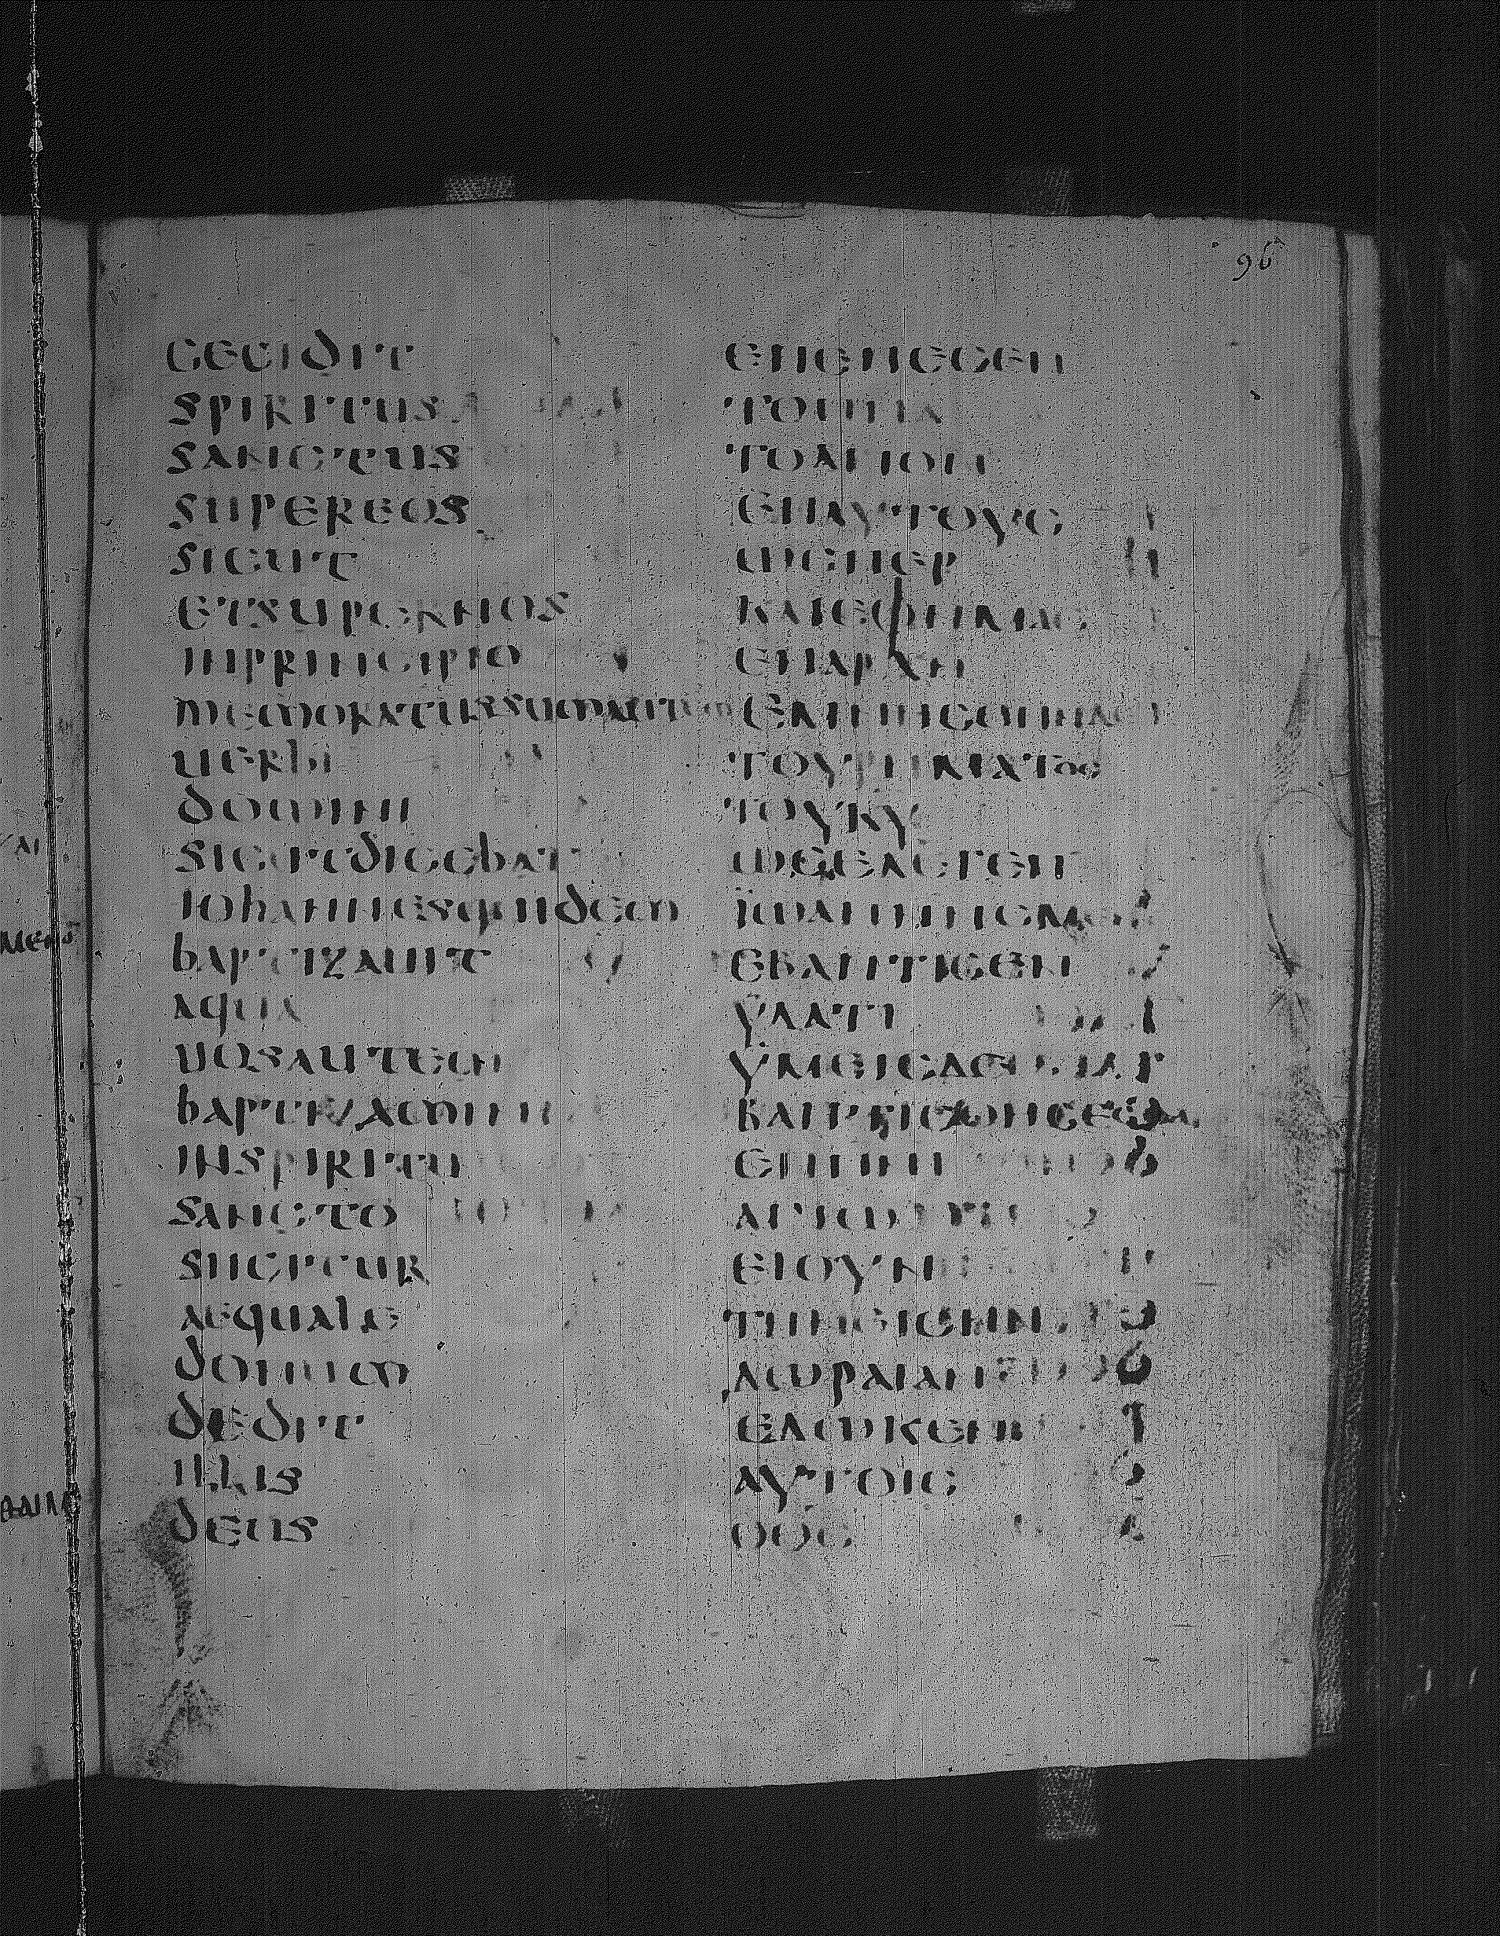 CECIDIT
SPIRITUS
SANCTUS
SUPEREOS
SICUT
ETSUPERNOS
INPRINCIPIO
MEMORATUSSUMAUTEM
UERBI
DOMINI
SICUTDICEBAT
IOHANNESQUIDEM
BAPTIZAUIT
AQUA
UOSAUTEM
BAPTIZAMINI
INSPIRITU
SANCTO
SIICITUR
AEQUALE
DONUM
DEDIT
ILLIS
DEUS
96
ΕΠΕΠΕCΕΝ
ΤΟΠΝΑ
ΤΟΑΓΙΟΝ
ΕΠΑΥΤΟΥC
ΩCΠΕΡ
ΚΑΙΕΦΗΜΑC
ΕΝΑΡΧΗ
ΕΜΝΗCΘΗΝΔΕ
ΤΟΥΡΗΜΑΤΟC
ΤΟΥΚΥ
ΩCΕΛΕΓΕΝ
ΪΩΑΝΝΗCΜΕΝ
ΕΒΑΠΤΙCΕΝ
ΫΔΑΤΙ
ΫΜΕΙCΔΕ
ΒΑΠΤΙCΘΗCΕCΘΑΙ
ΕΝΠΝΙ
ΑΓΙΩ
ΕΙΟΥΝ
ΤΗΝΕΙCΗΝ
ΔΩΡΑΙΑΝ
ΕΔΩΚΕΝ
ΑΥΤΟΙC
ΟΘC